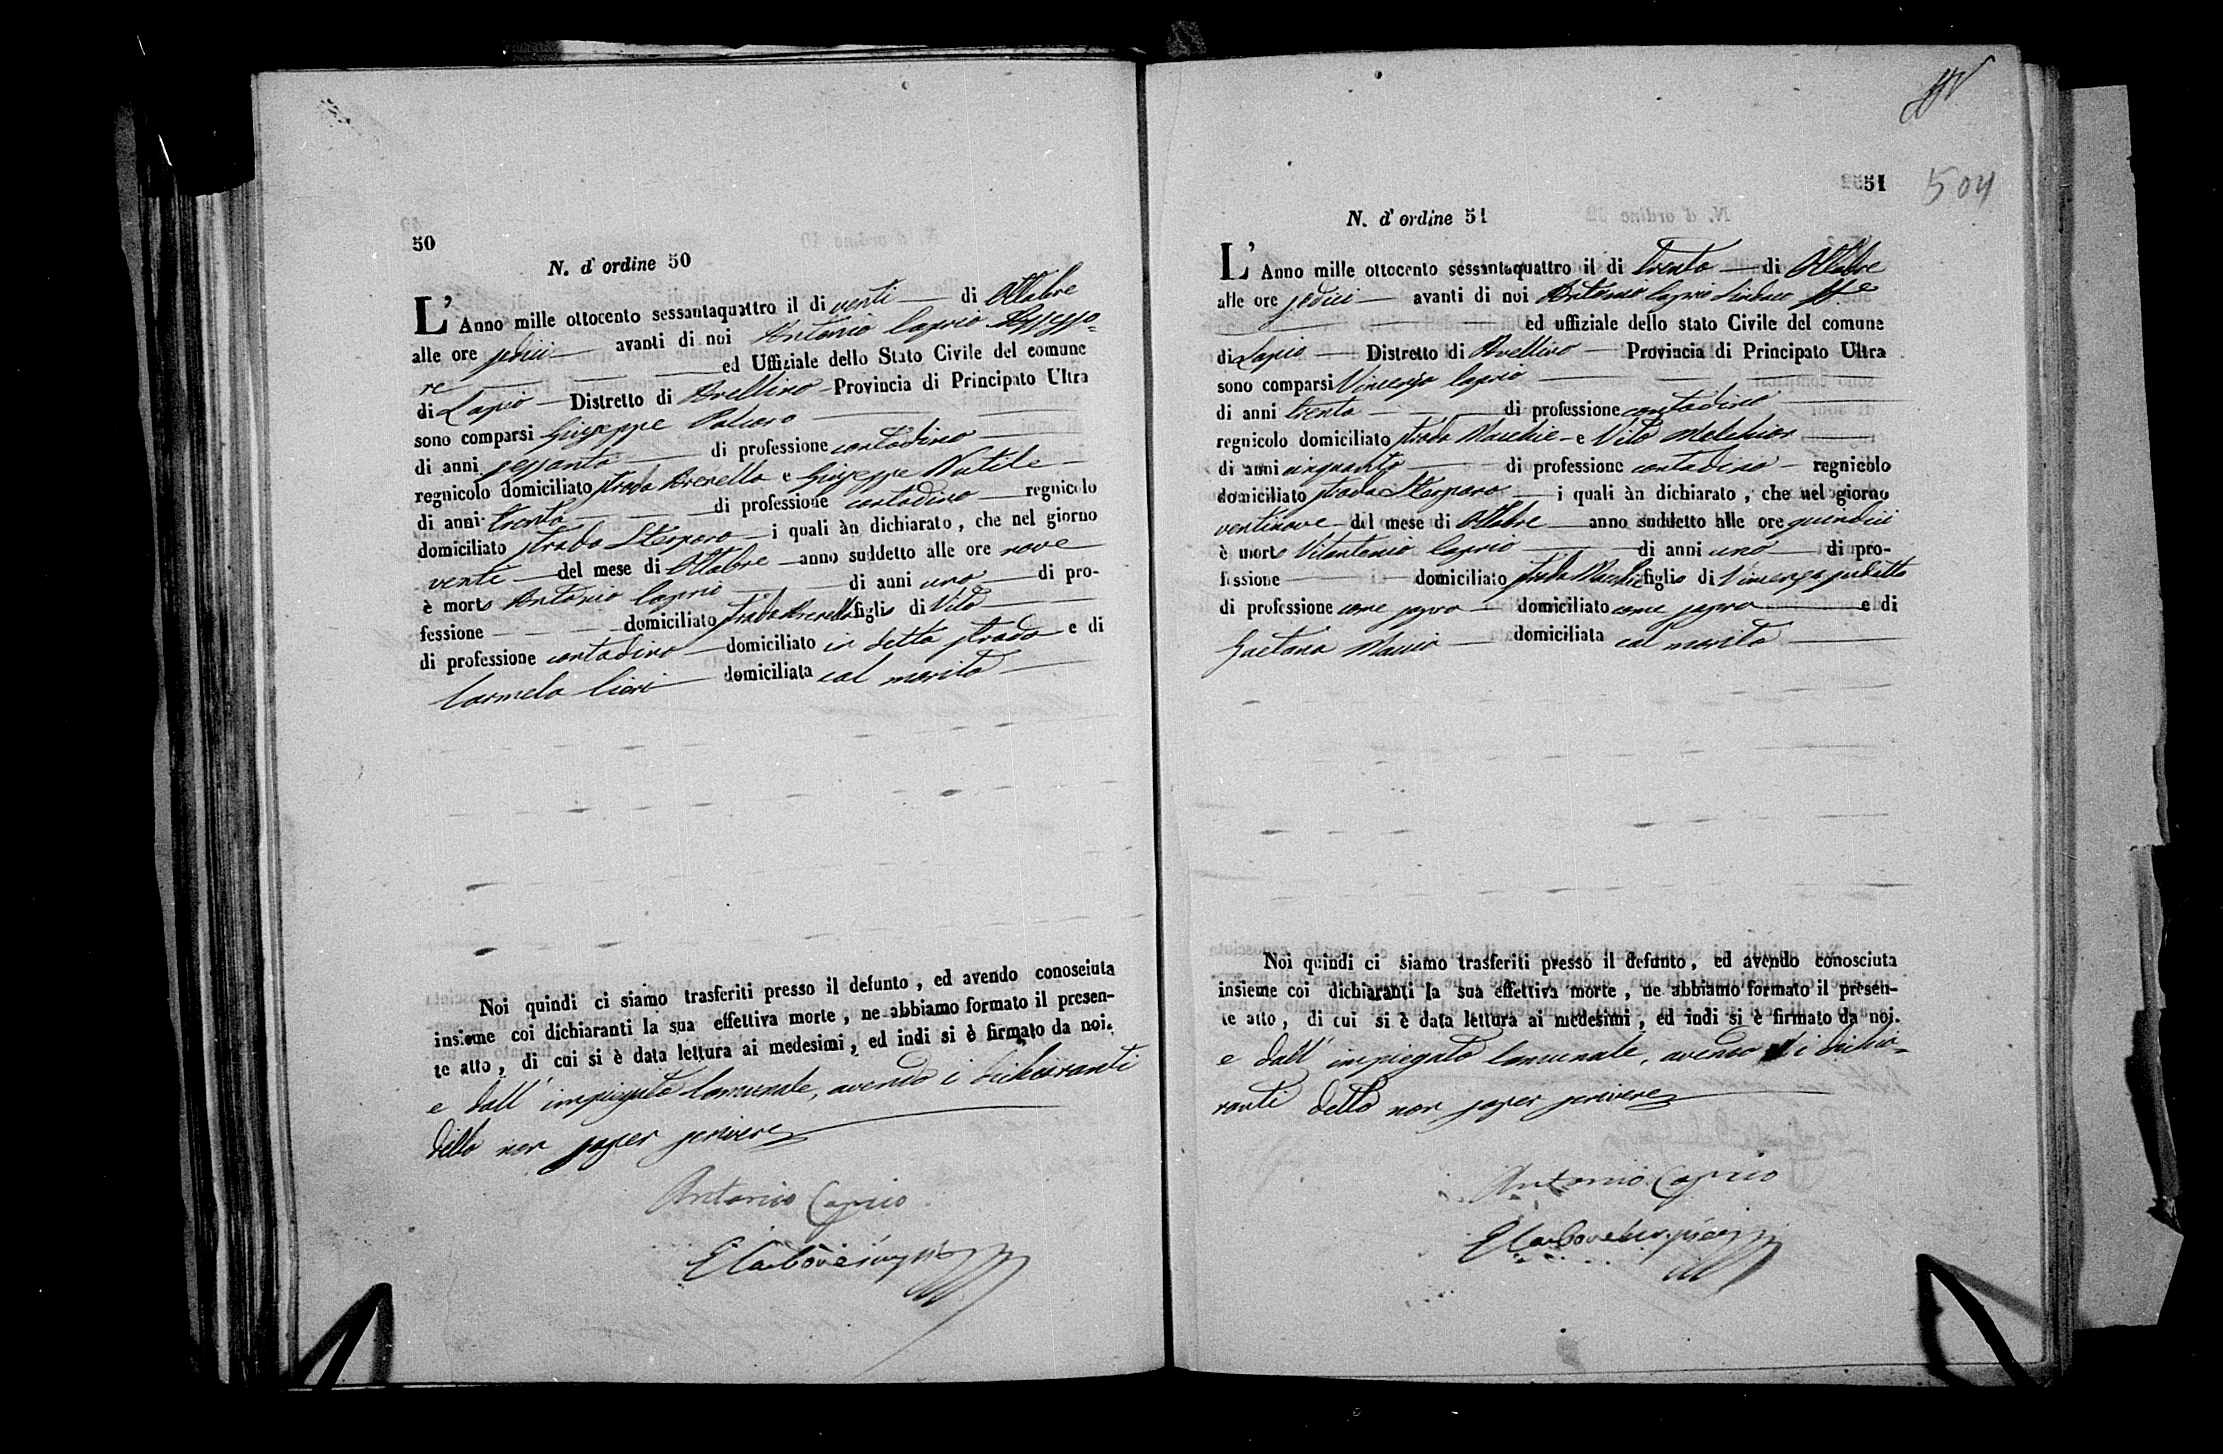 50
N. d' ordine 50
L' Anno mille ottocento sessantaquattro il di venti di Ottobre
alle ore sedici avanti di noi Antonio Caprio Assesso=
re ed Uffiziale dello Stato Civile del comune
di Lapio Distretto di Avellino Provincia di Principato Ultra
sono comparsi Giuseppe
di anni sessanta di professione contadino
regnicolo domiciliato strada Arenella e Giuseppe Nutile
di anni trenta di professione contadino regnicolo
domiciliato strada i quali àn dichiarato, che nel giorno
venti del mese di Ottobre anno suddetto alle ore nove
è morto Antonio Caprio di anni uno di pro-
fessione domiciliato strada Arenella figlio di Vito
di professione contadino domiciliato in detta strada e di
Carmela domiciliata col marito
Noi quindi ci siamo trasferiti presso il defunto, ed avendo conosciuta
insieme coi dichiaranti la sua effettiva morte, ne abbiamo formato il presen-
te atto, di cui si è data lettura ai medesimi, ed indi si è firmato da noi.
e dall' impiegato Comunale, avendo i dichiaranti
detto non saper scrivere
Antonio Caprio
51
504
N. d' ordine 51
L' Anno mille ottocento sessantaquattro il di trenta di Ottobre
alle ore sedici avanti di noi Antonio Caprio Sindaco ff.e
ed uffiziale dello stato Civile del comune
di Lapio Distretto di Avellino Provincia di Principato Ultra
sono comparsi Vincenzo Caprio
di anni trenta di professione contadino
regnicolo domiciliato strada Macchie e Vito Melchior
di anni cinquanta di professione contadino regnicolo
domiciliato strada i quali àn dichiarato, che nel giorno
ventinove del mese di Ottobre anno suddetto alle ore quindici
è morto Vitantonio Caprio di anni uno di pro-
fessione domiciliato strada Macchie figlio di Vincenzo sudetto
di professione come sopra domiciliato come sopra e di
Gaetana domiciliata col marito
Noi quindi ci siamo trasferiti presso il defunto, ed avendo conosciuta
insieme coi dichiaranti la sua effettiva morte, ne abbiamo formato il presen-
te atto, di cui si è data lettura ai medesimi, ed indi si è firmato da noi.
e dall' impiegato Comunale, avendo i dichia=
ranti detto non saper scrivere
Antonio Caprio